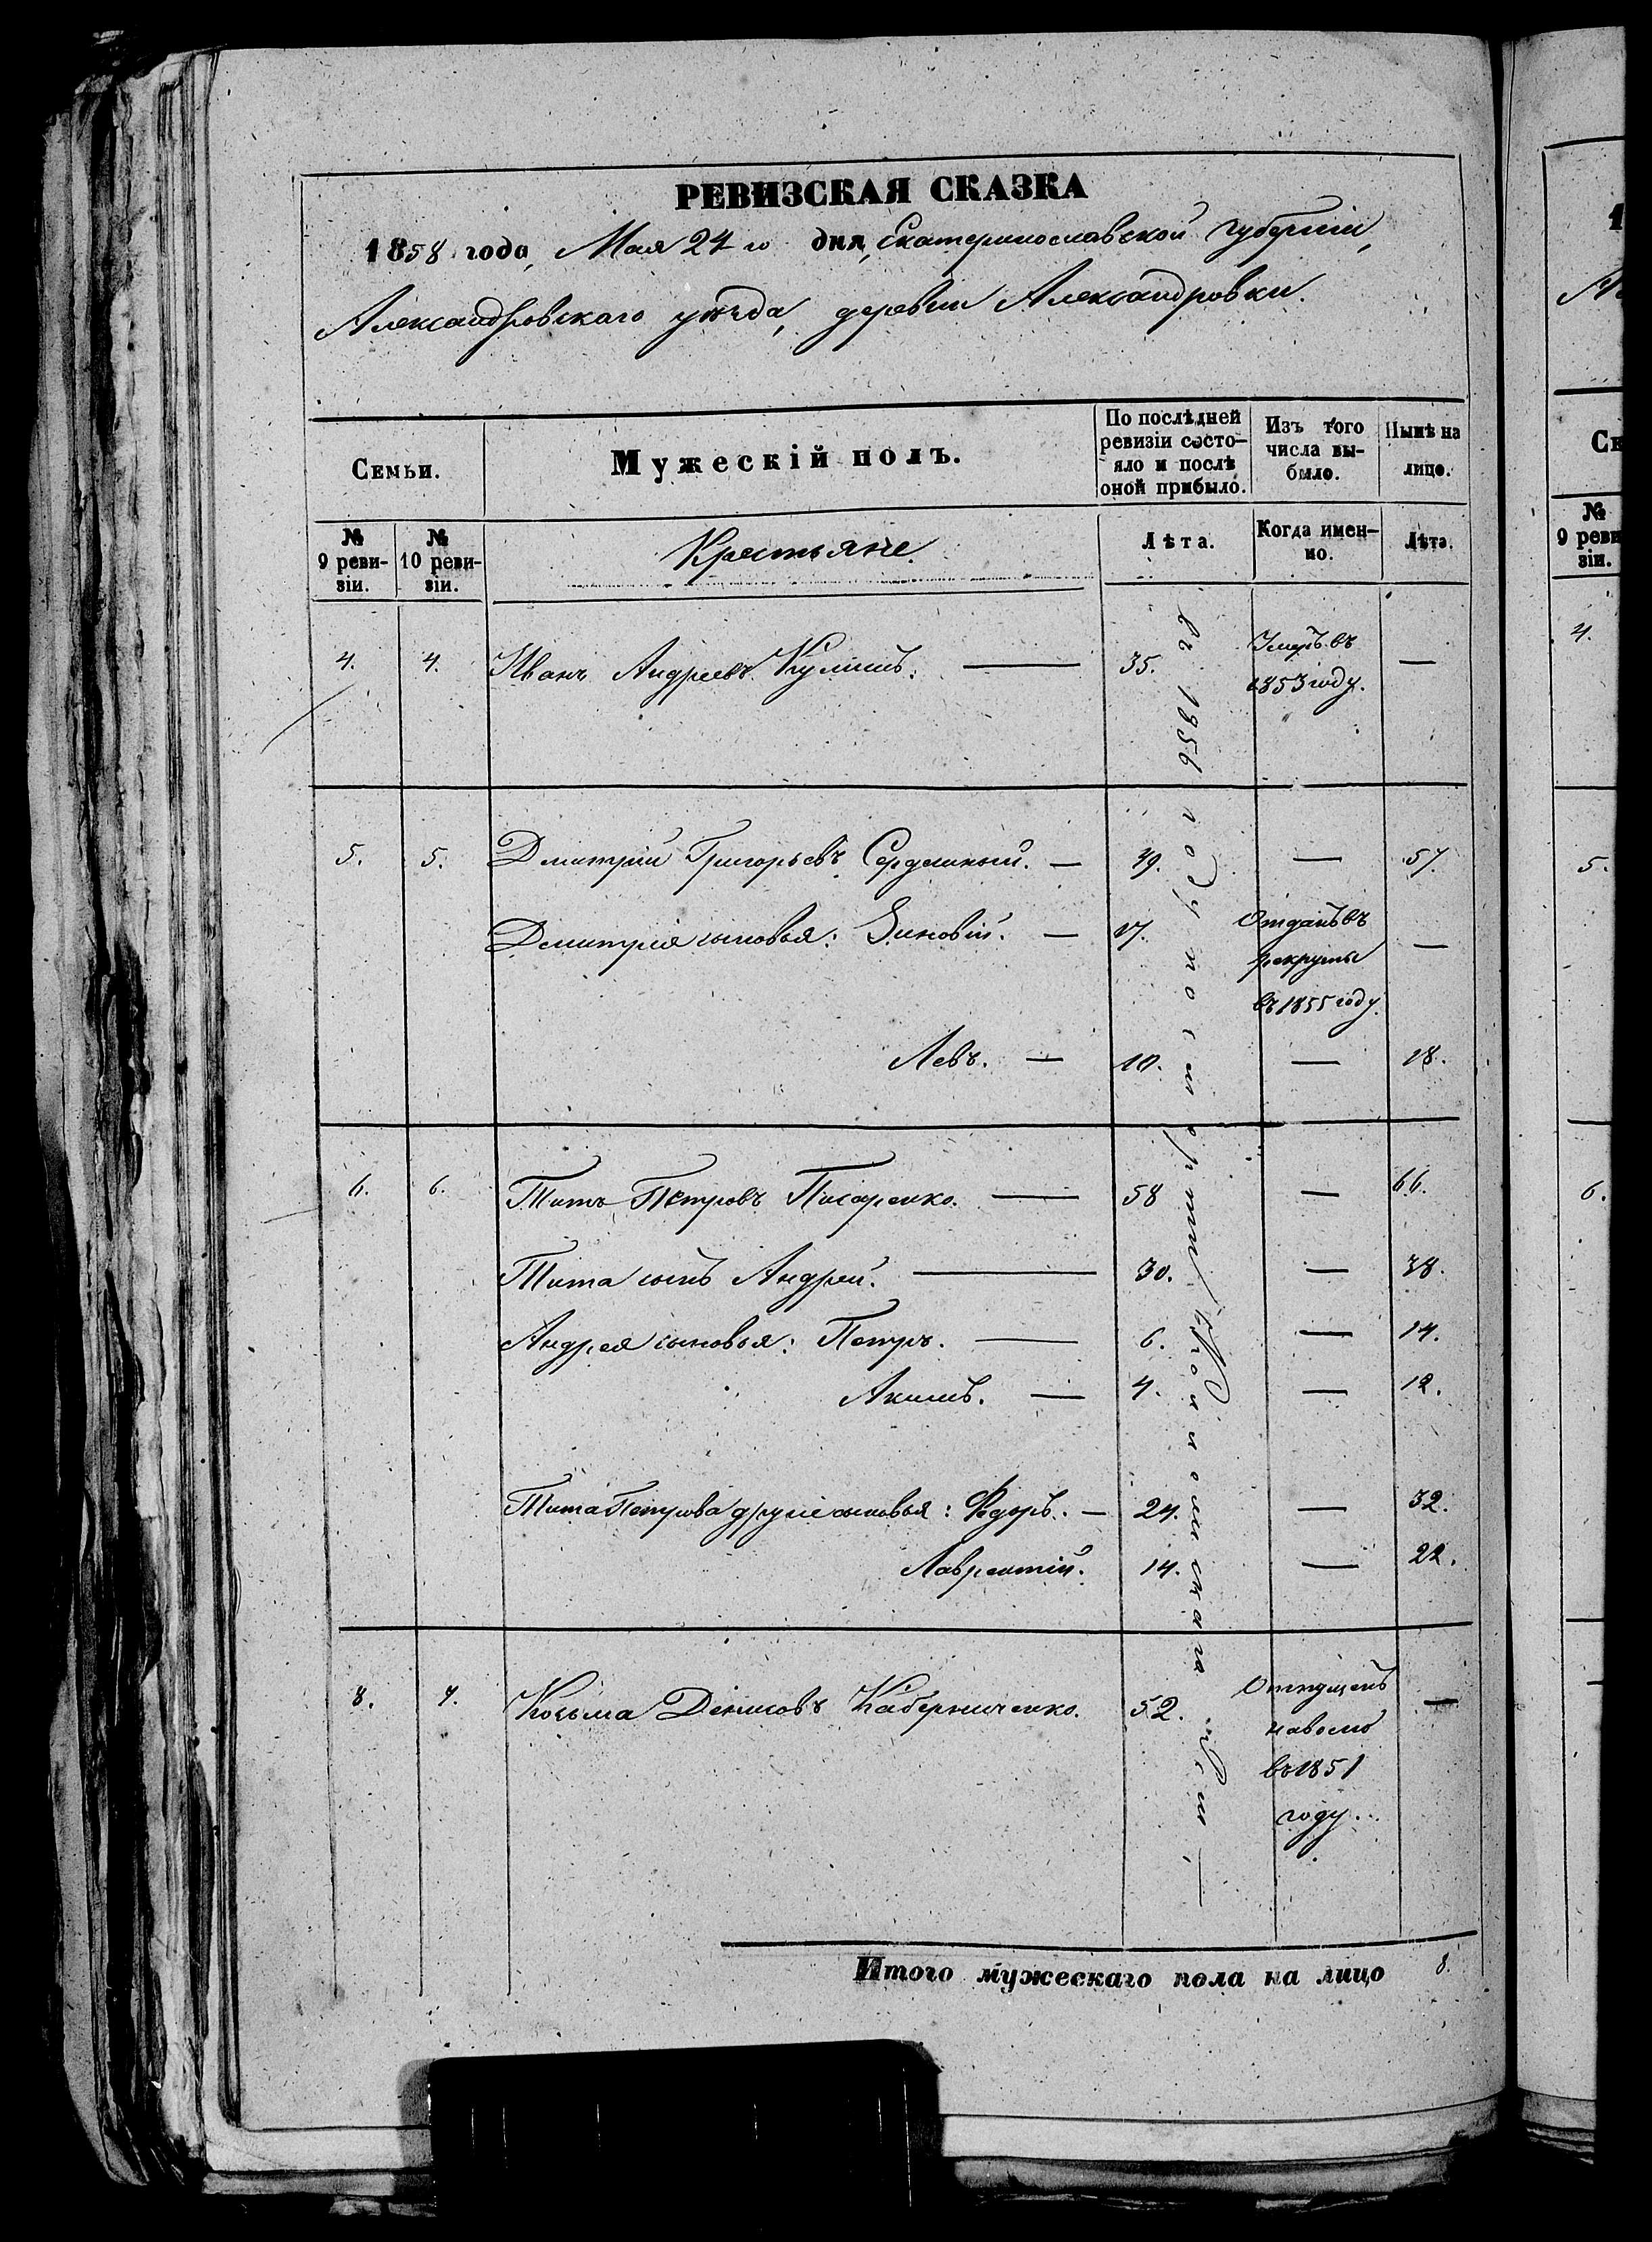 РЕВИЗСКАЯ СКАЗКА
1858 года, Мая 24 го дня, Екатеринославской Губернiи,
Александровскаго уѣзда, деревни Александровки.
Семьи.
Мужескiй полъ.
По послѣдней ревизiи состо-
яло и послѣ
оной прибыло.
Изъ того
числа вы-
было.
Нынѣ на
лицо.
№
9 реви-
зiи.
№
10 реви-
зiи.
Крестьяне
Лѣта.
Когда имен-
но.
Лѣта.
4. 4. Иванъ Андреевъ Кулишъ. — 35. Умеръ въ
1853 году. —
5. 5. Дмитрiй Григорьевъ Сердешный. — 49. — 57.
Дмитрiя сыновья: Зиновiй. — 17. Отданъ въ
рекруты
въ 1855 году. —
Левъ. — 10. — 18.
6. 6. Титъ Петровъ Писаренко. — 58 — 66.
Тита сынъ Андрей. — 30. — 38.
Андрея сыновья: Петръ. — 6. — 14.
Акимъ. — 4. — 12.
Тита Петрова другiе сыновья: Федоръ. — 24. — 32.
Лаврентiй. 14. — 22.
8. 7. Козьма Денисовъ Каберниченко. 52. Отпущенъ
наволю
въ 1851
году. —
въ 1856 году по смерти
Итого мужескаго пола на лицо 8.
1
Се
№
9 реви
зiи.
4.
5.
6.